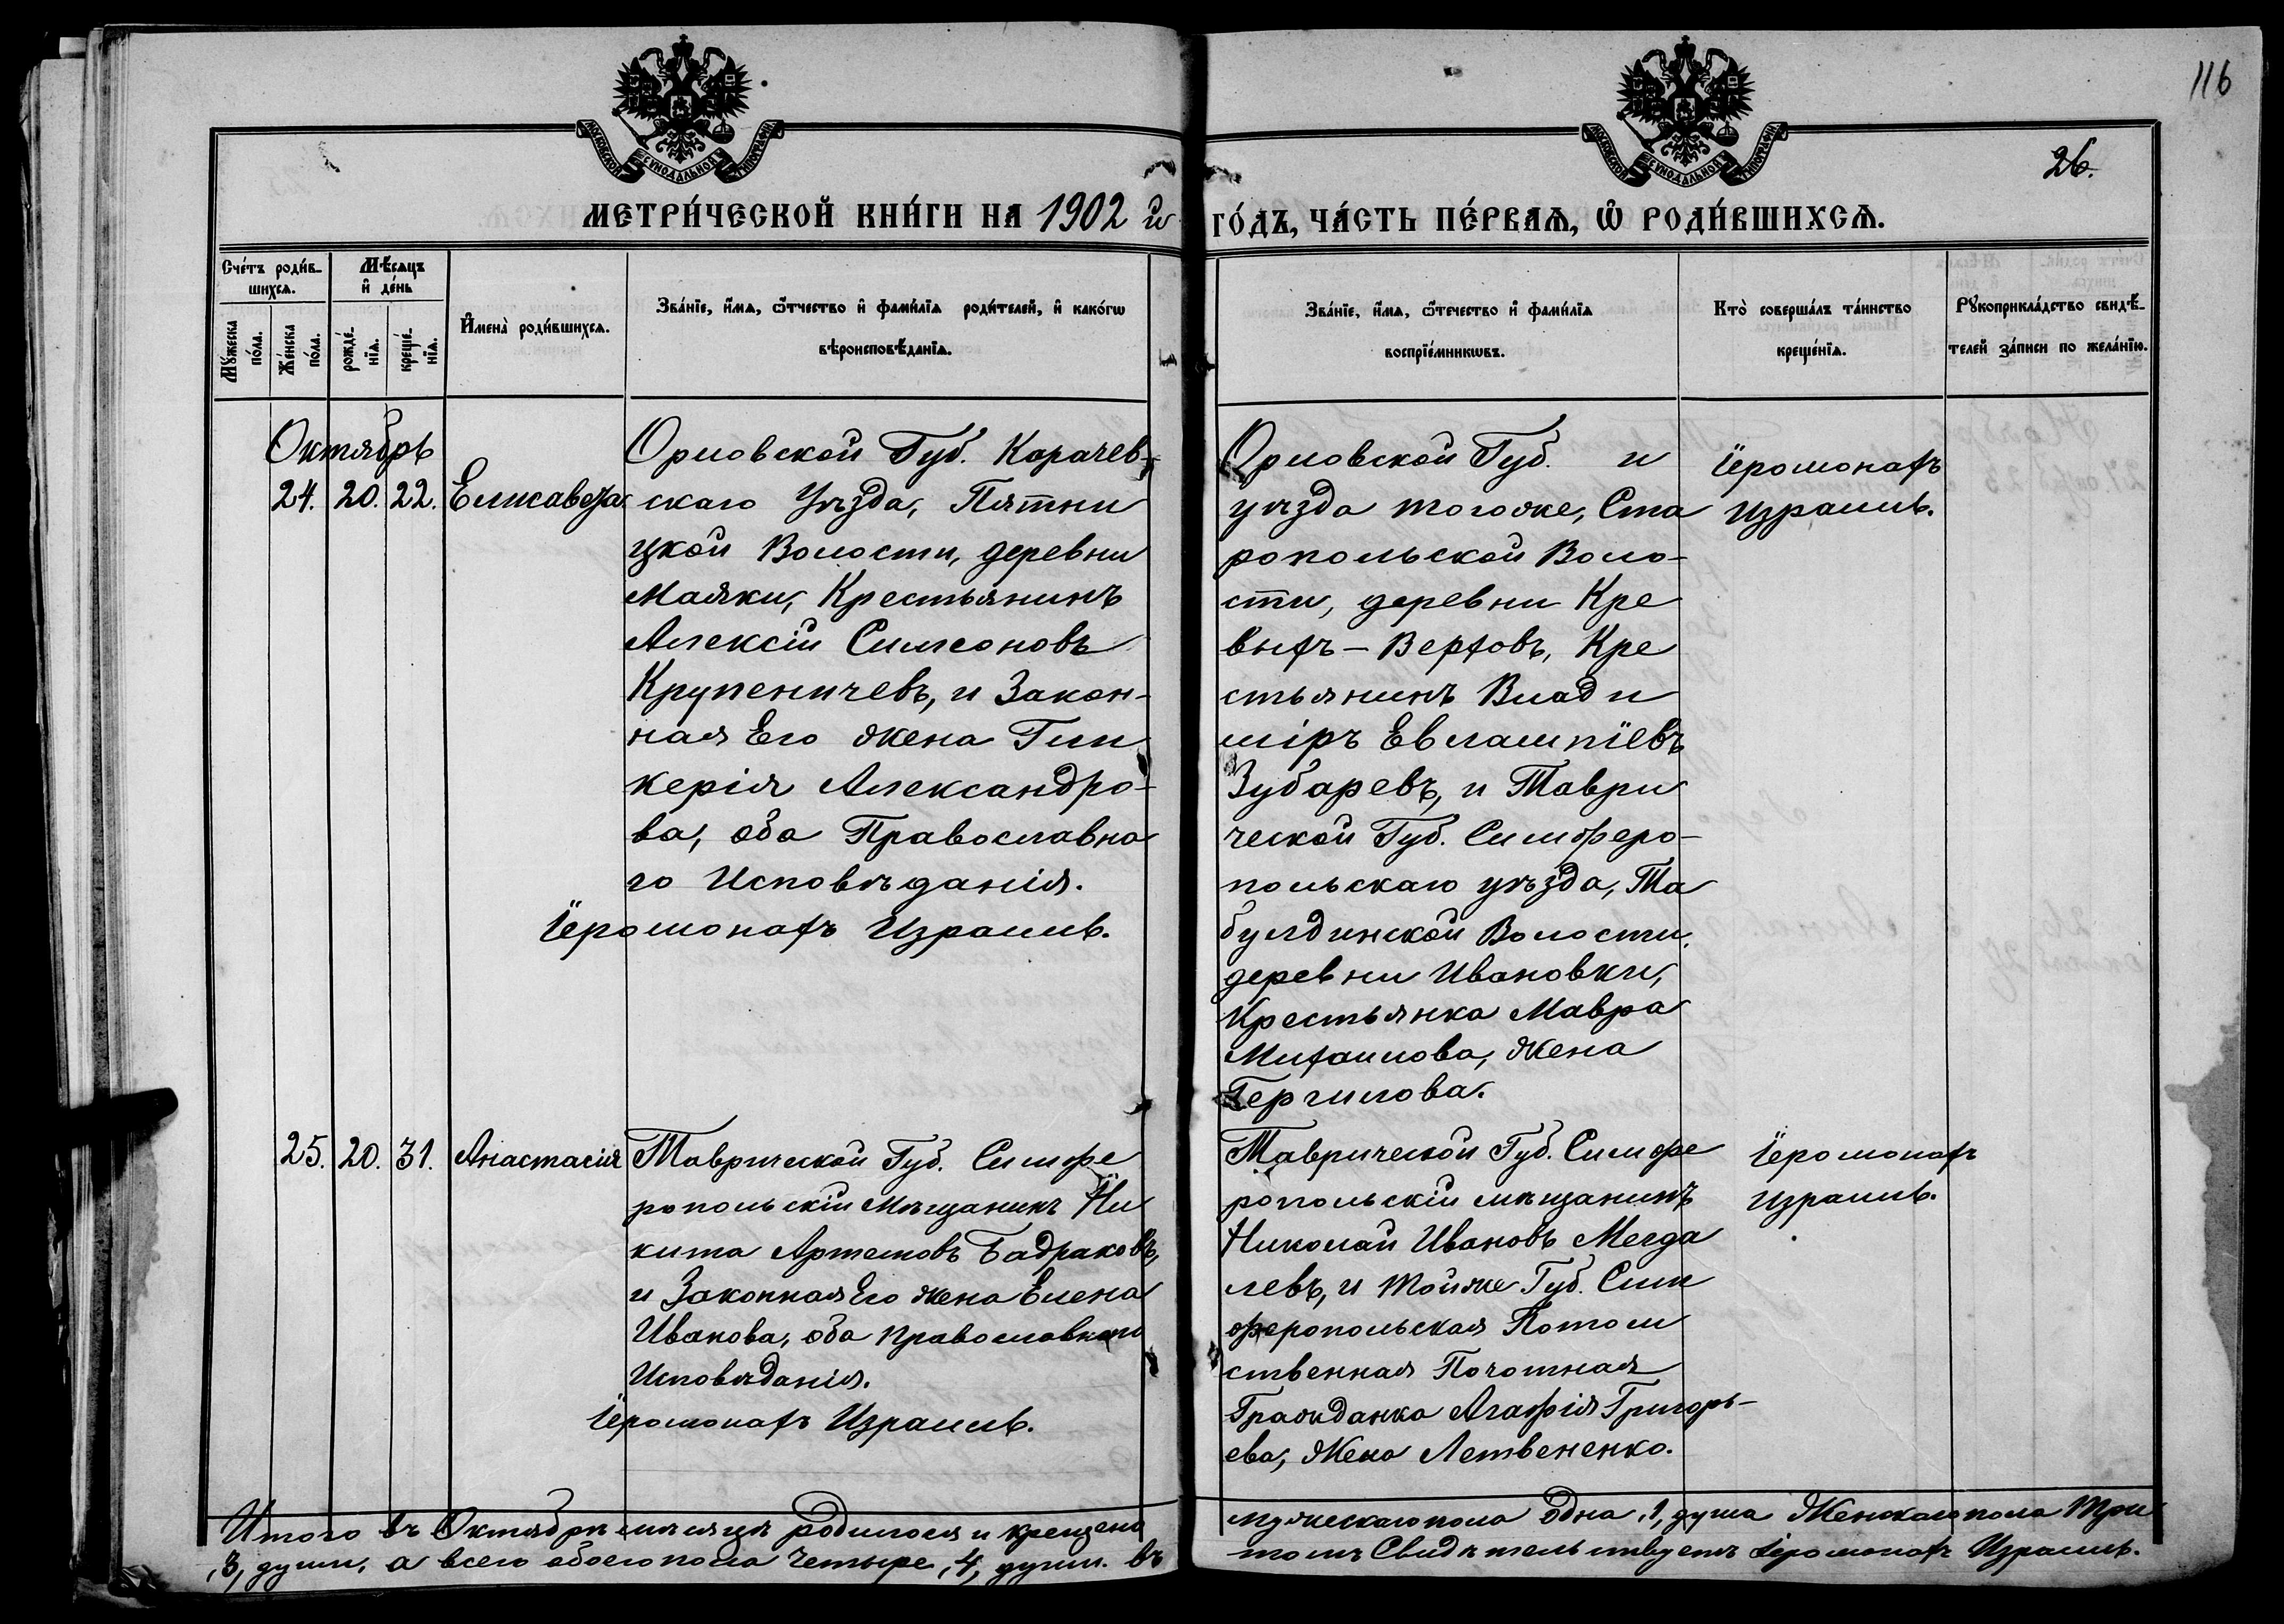 116
26.
МОСКОВСКОЙ СѴНОДАЛЬНОЙ ТИПОГРАФІИ
МОСКОВСКОЙ СѴНОДАЛЬНОЙ ТИПОГРАФІИ
МЕТРИ́ЧЕСКОЙ КНИ́ГИ НА 1902 й
ГО́ДЪ, ЧА́СТЬ ПЕ́РВАѦ, Ѡ РОДИ́ВШИХСѦ.
Сче́тъ роди́в-
шихсѧ.
Мꙋ́жеска
по́ла.
Же́нска
по́ла.
Мѣ́сѧцъ
и҆ де́нь
рожде́-
нїѧ.
креще́-
нїѧ.
И҆мена̀ роди́вшихсѧ.
Зва́нїе, и҆́мѧ, ѻ҆́тчество и҆ фами́лїѧ роди́телей, и҆ како́гѡ
вѣроисповѣ́данїѧ.
Зва́нїе, и҆́мѧ, ѻ҆́течество и҆ фами́лїѧ
воспрїе́мникѡвъ.
Кто̀ соверша́лъ та́инство
креще́нїѧ.
Рꙋкоприкла́дство свидѣ́-
телей за́писи по жела́нїю.
Октябрь
24. 20. 22. Елисавета.
Орловской Губ. Карачев-
скаго Уѣзда, Пятни
цкой Волости, деревни
Маяки, Крестьянинъ
Алексій Симеоновъ
Крупеничевъ, и Закон-
ная Его жена Гли
керія Александро-
ва, оба Православна
го Исповѣданія.
Іеромонахъ Израиль.
Орловской Губ. и
уѣзда тогоже, Ста
ропольской Воло-
сти, деревни Кре
выхъ-Верховъ, Кре
стьянинъ Влади
міръ Евлампіевъ
Зубаревъ, и Таври
ческой Губ. Симферо-
польскаго уѣзда, Та
булдинской Волости,
деревни Ивановки,
Крестьянка Мавра
Михаилова, жена
Гергилова.
Іеромонахъ
Израиль.
25. 20. 31. Анастасія
Таврической Губ. Симфе
ропольскій Мѣщанинъ Ни
кита Артемовъ Бадраковъ,
и Законная Его жена Елена
Иванова, оба Православнаго
Исповѣданія.
Іеромонахъ Израиль.
Таврической Губ. Симфе
ропольскій мѣщанинъ
Николай Ивановъ Мегда
левъ, и тойже Губ. Сим
феропольская Потом
ственная Почотная
Гражданка Агафія Григорь-
ева, жена Летвененко.
Іеромонахъ
Израиль.
Итого въ Октябрѣ мѣсяцѣ родилося и крещено
мужескаго пола одна ,1, душа Женскаго пола три
,3, души, а всего обоего пола четыре ,4, души. въ
томъ Свидѣтельствуетъ Іеромонахъ Израиль.